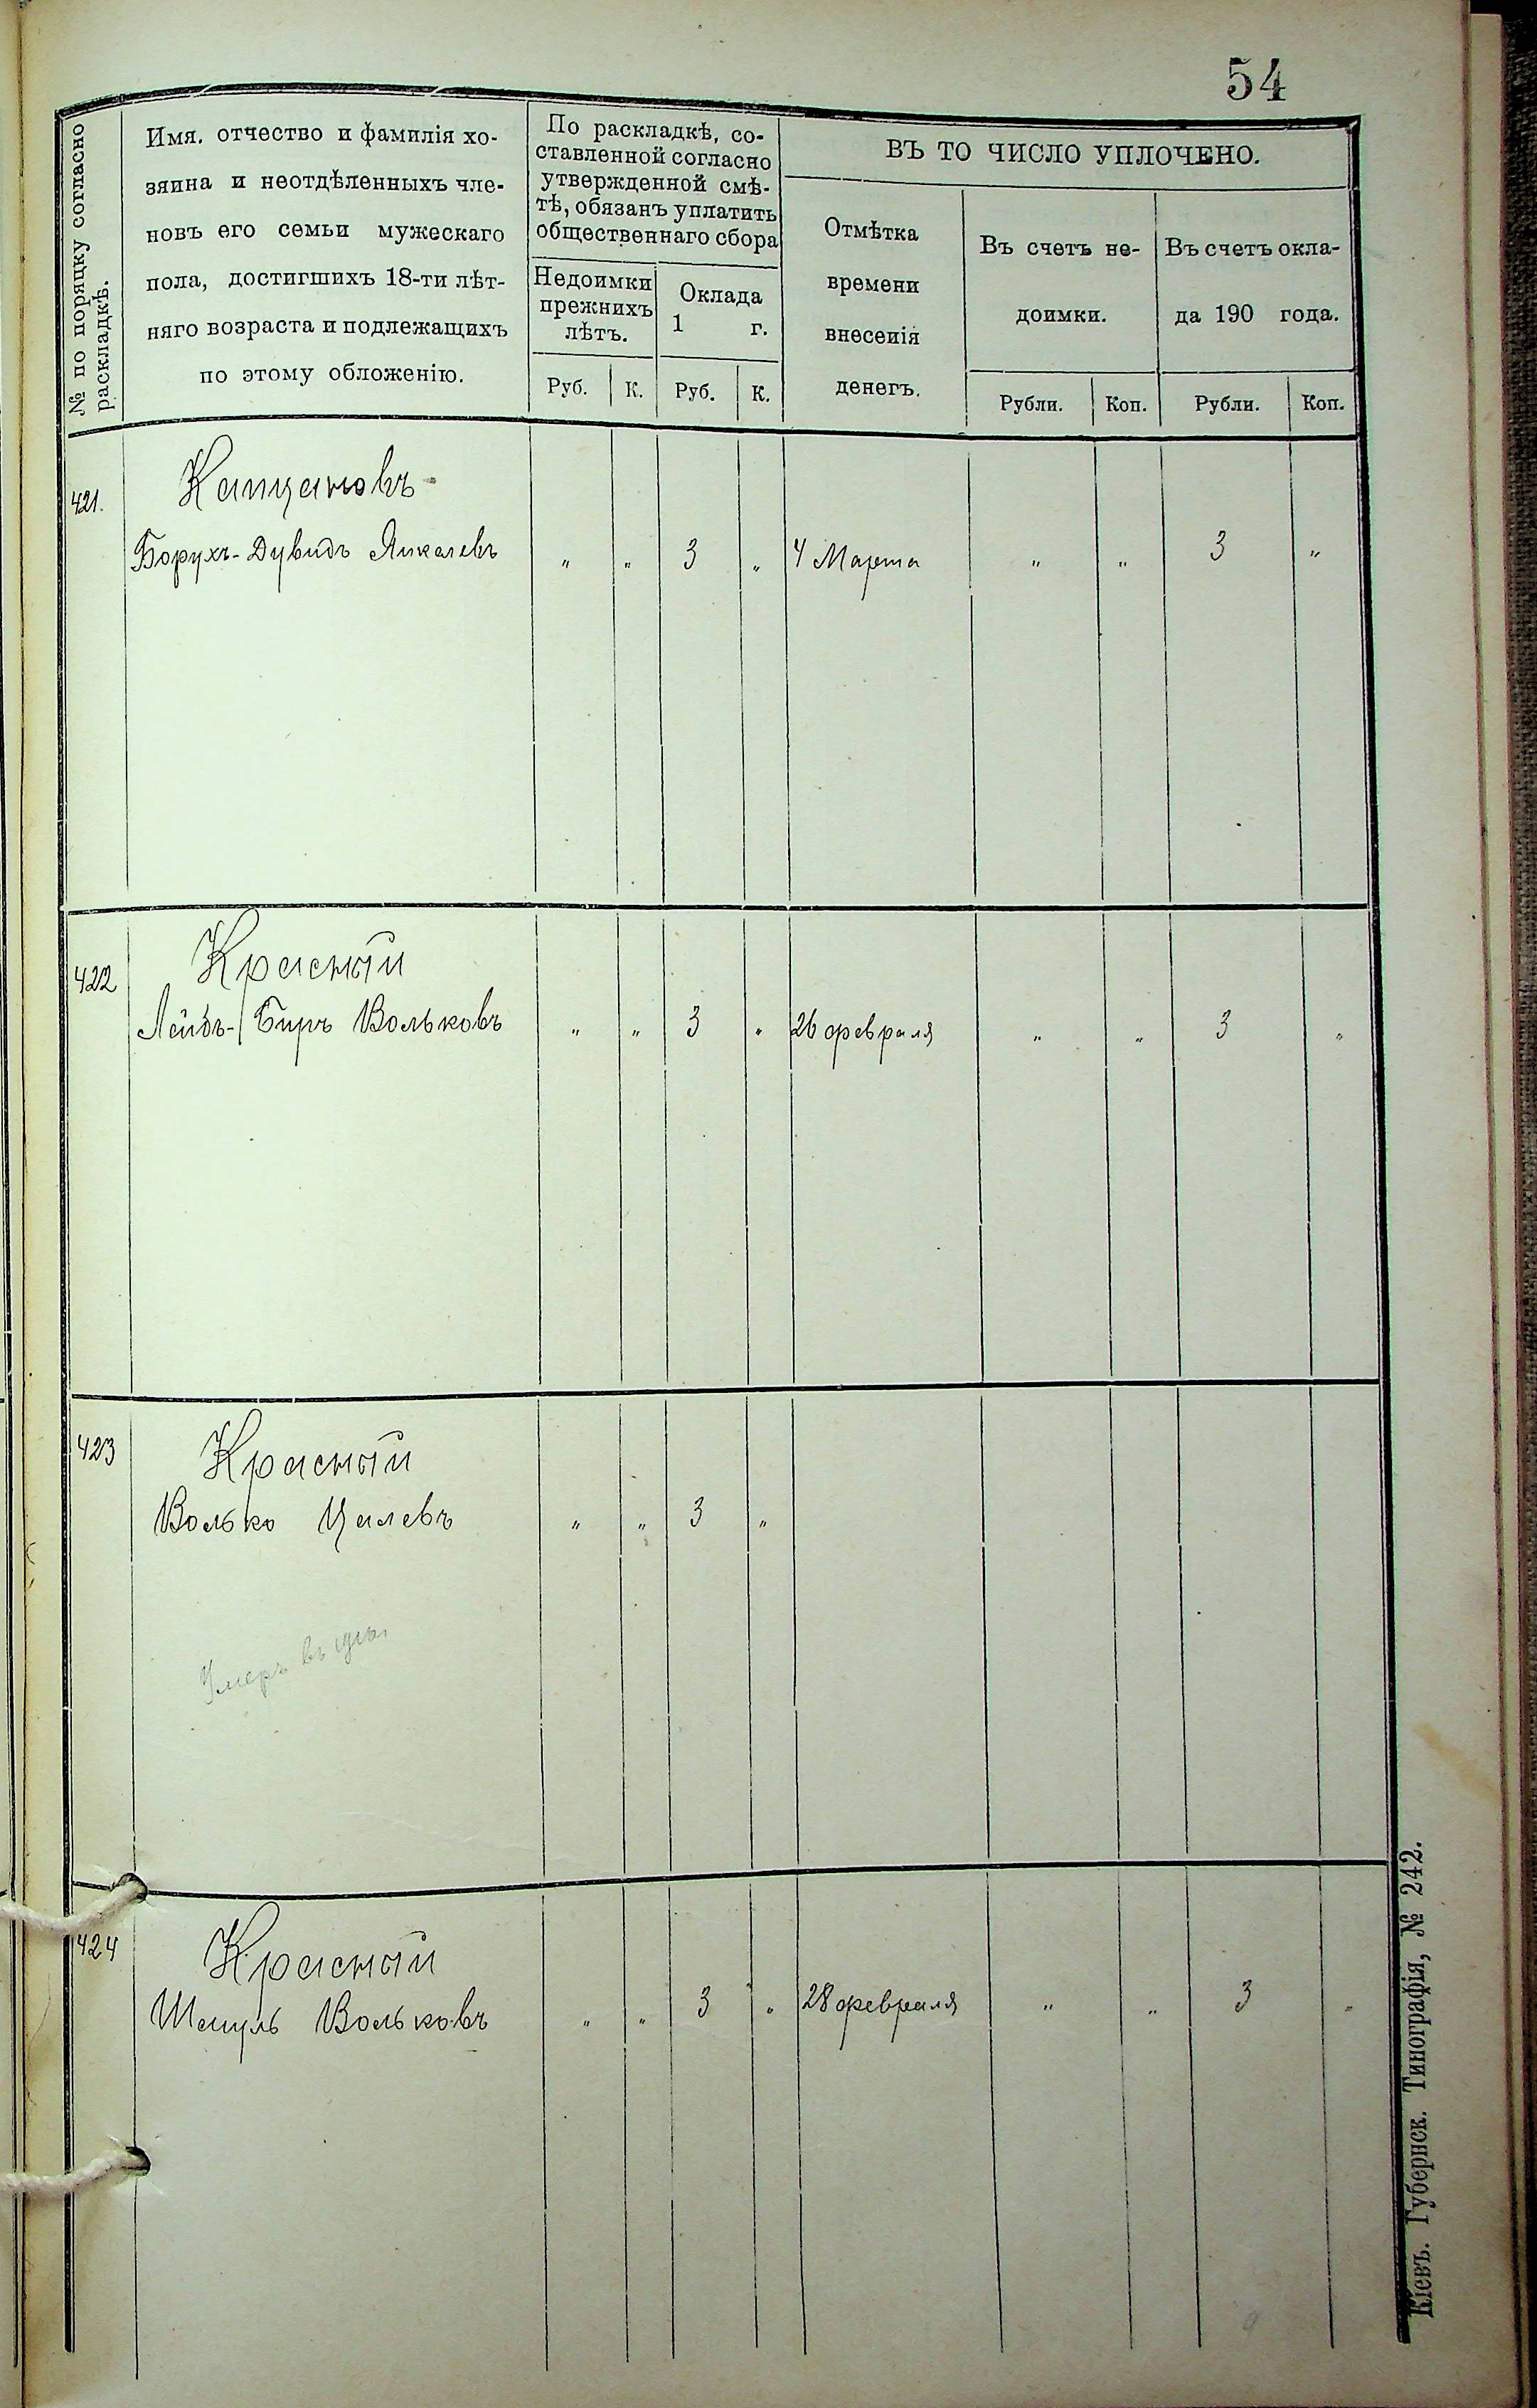 54
№ по порядку согласно
раскладкѣ.
Имя. отчество и фамилія хо-
зяина и неотдѣленныхъ чле-
новъ его семьи мужескаго
пола, достигшихъ 18-ти лѣт-
няго возраста и подлежащихъ
по этому обложенію.
По раскладкѣ, со-
ставленной согласно
утвержденной смѣ-
тѣ, обязанъ уплатить
общественнаго сбора
Недоимки
прежнихъ
лѣтъ.
Оклада
1 г.
Руб. К. Руб. К.
ВЪ ТО ЧИСЛО УПЛОЧЕНО.
Отмѣтка
времени
внесенія
денегъ.
Въ счетъ не-
доимки.
Въ счетъ окла-
да 190 года.
Рубли. Коп. Рубли. Коп.
421. Капцановъ
Борухъ-Дувидъ Янкелевъ " " 3 " 4 Марта " " 3 "
422 Красный
Лейбъ-Биръ Вольковъ " " 3 " 26 февраля " " 3 "
423 Красный
Волько Цалевъ " " 3 "
Умеръ въ
424 Красный
Шмуль Вольковъ " " 3 " 28 февраля " " 3 "
Кіевъ. Губернск. Типографія, № 242.